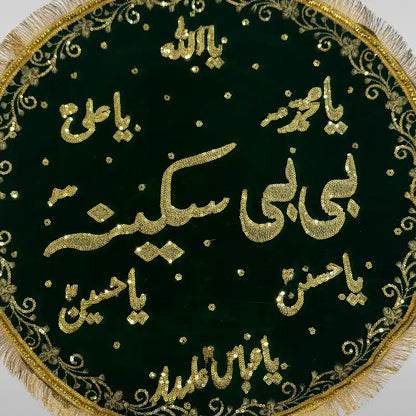 یااللہ
یا محمدؐ یا علیؑ
بی بی سکینہ
یا حسنؑ یا حسینؑ
یا عباس علمدار